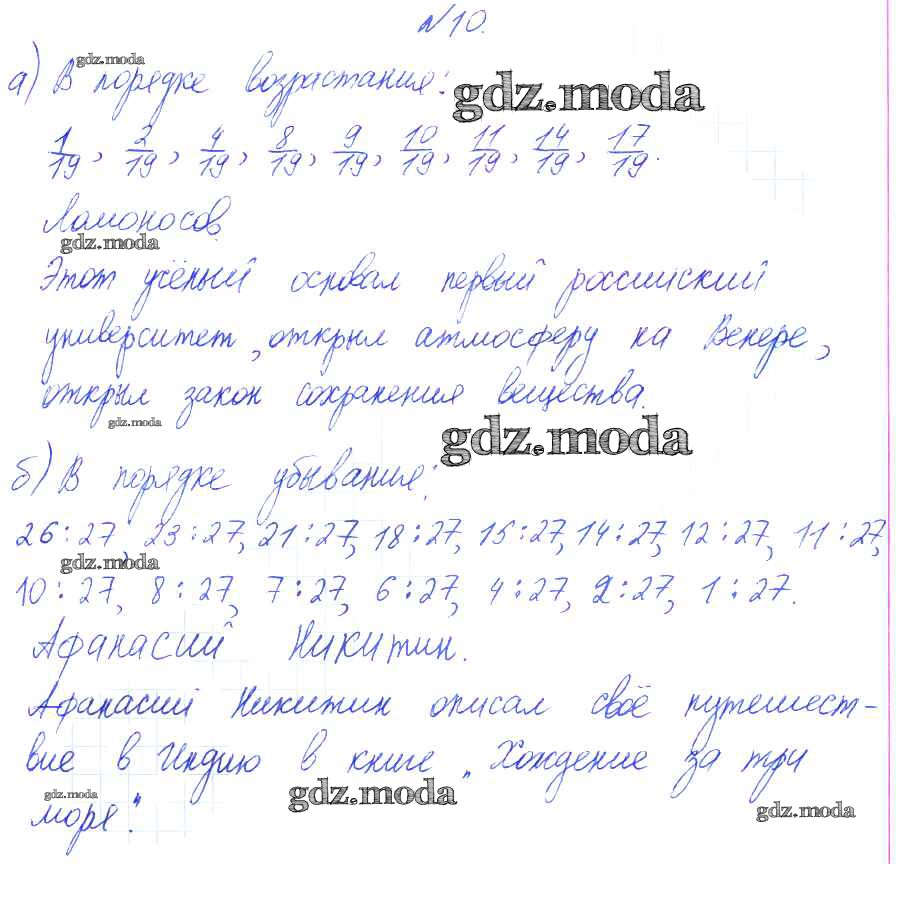 №10.
gdz.moda
а) В порядке возрастания:
gdz.moda
1/19, 2/19, 4/19, 8/19, 9/19, 10/19, 11/19, 14/19, 17/19.
Ломоносов
gdz.moda
Этот учёный основал первый российский
университет, открыл атмосферу на Венере,
открыл закон сохранения вещества.
gdz.moda
gdz.moda
б) В порядке убывания:
26:27, 23:27, 21:27, 18:27, 15:27, 14:27, 12:27, 11:27,
gdz.moda
10:27, 8:27, 7:27, 6:27, 4:27, 2:27, 1:27.
Афанасий Никитин.
Афанасий Никитин описал своё путешест-
вие в Индию в книге „Хождение за три
gdz.moda
gdz.moda
gdz.moda
моря".